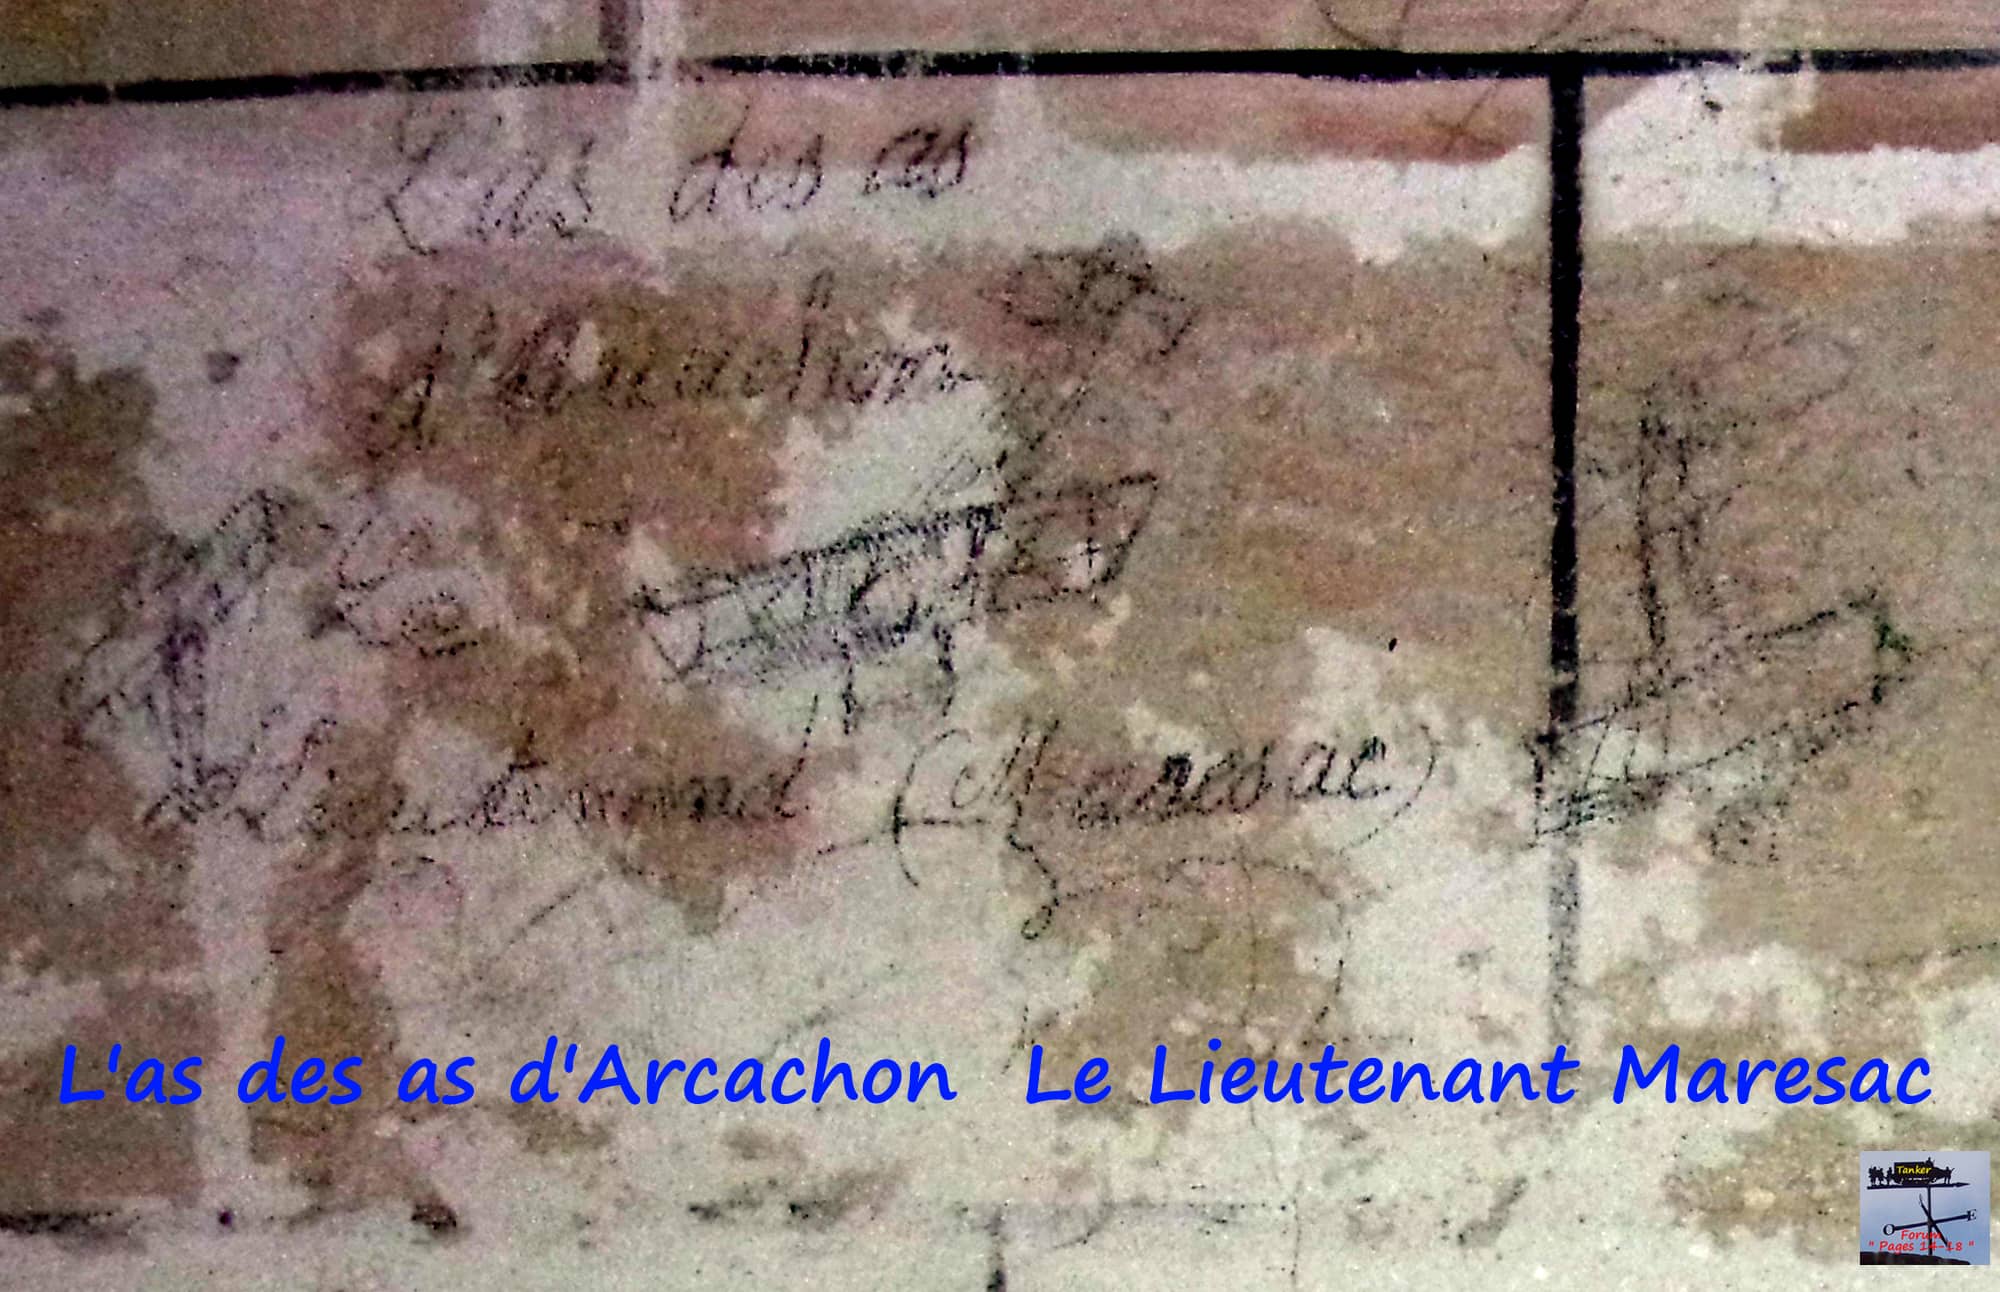 L'as des as
d'Arcachon
Lieutenant (Maresac)
L'as des as d'Arcachon Le Lieutenant Maresac
Tanker
O E
Forum
" Pages 14-18 "